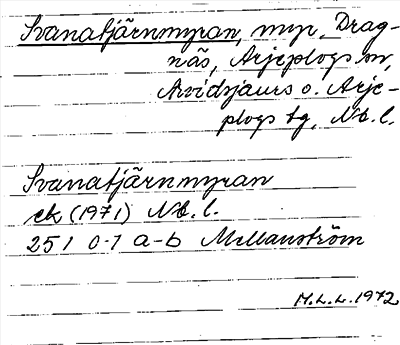 Svanatjärnmyran, myr, Drag-
näs, Arjeplogs sn,
Arvidsjaurs o. Arje-
plogs tg, Nb. l.
Svanatjärnmyran
ek (1971) Nb. l.
25 I 0-1 a-b Mellanström
M.L.L. 1972